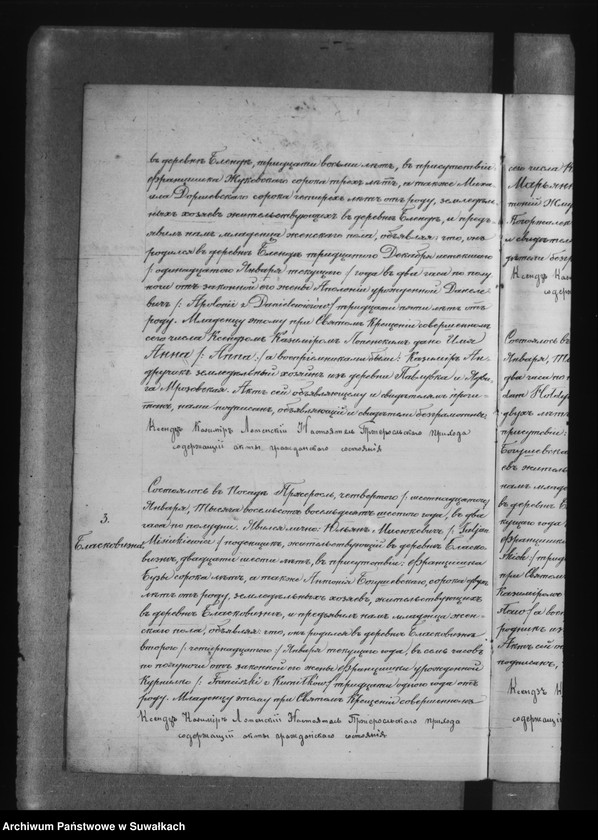 въ деревнѣ Еленцѣ, тридцати восьми лѣтъ, въ присутствіи
Францишка Жуковскаго сорока трехъ лѣтъ, а также Миха
ила сорока четырехъ лѣтъ отъ роду, земледѣль
ныхъ хозяевъ жительствующихъ въ деревнѣ Еленцѣ, и предъ
явилъ намъ младенца женскаго пола, объявляя: что, онъ
родился въ деревнѣ Еленцѣ тридцатаго Декабря истекшаго
/ одинадцатаго Января текущаго / года въ два часа по полу
ночи отъ законной его жены Аполоніи урожденной Даниле
вичъ /: Apolonii z Danielewiczów / тридцати пяти лѣтъ отъ
роду. Младенцу этому при Святомъ Крещеніи совершенномъ
сего числа Ксендзомъ Казиміромъ Лопенскимъ, дано Имя
Анна /: Anna :/ а воспріемниками были: Казиміръ Ан
дручикъ земледѣльный хозяинъ изъ деревни и Ядви
га Мрозовская. Актъ сей объявляющему и свидѣтелямъ прочи
танъ, нами подписанъ, объявляющій и свидѣтели безграмотны.
Ксендзъ Казиміръ Лопенскій Настоятель Пржеросльскаго прихода
содержащій акты гражданского состоянія
3.
Бласковизна
Состоялось въ Посадѣ Пржеросль, четвертого /: шестнадцатаго /
Января, тысяча восемьсотъ восемьдесятъ шестого года, въ два
часа по полудни. Явился лично: Юльянъ Мисюкевичъ /: Juljan
Misiukiewicz / поденщикъ, жительствующій въ деревнѣ Бласко
визнѣ, двадцати шести лѣтъ, въ присутствіи: Францишка
Бузы сорока лѣтъ, а также Антонія Богушевскаго, сорока двухъ
лѣтъ отъ роду, земледѣльныхъ хозяевъ, жительствующихъ
въ деревнѣ Бласковизнѣ, и предъявилъ намъ младенца жен
скаго пола, объявляя: что, онъ родился въ деревнѣ Бласковизнѣ
второго /: четырнадцатаго / Января текущаго года, въ семь часовъ
по полуночи отъ законной его жены Францишки урожденной
/: Franciszki z / тридцати одного года отъ
роду. Младенцу этому при Святомъ Крещеніи совершенномъ
Ксендзъ Казиміръ Лопенскій Настоятель Пржеросльскаго прихода
содержащій акты гражданского состоянія
сего числа
Марьян
Состоялось въ
Января,
два часа по
двухъ лѣтъ
присутствіи:
Богушевска
евъ житель
намъ младе
въ деревнѣ
кущаго года
Францишки
при Святомъ
Казиміромъ
родникъ из
Актъ сей
подписанъ,
Ксендзъ
содержащій
Archiwum Państwowe w Suwałkach